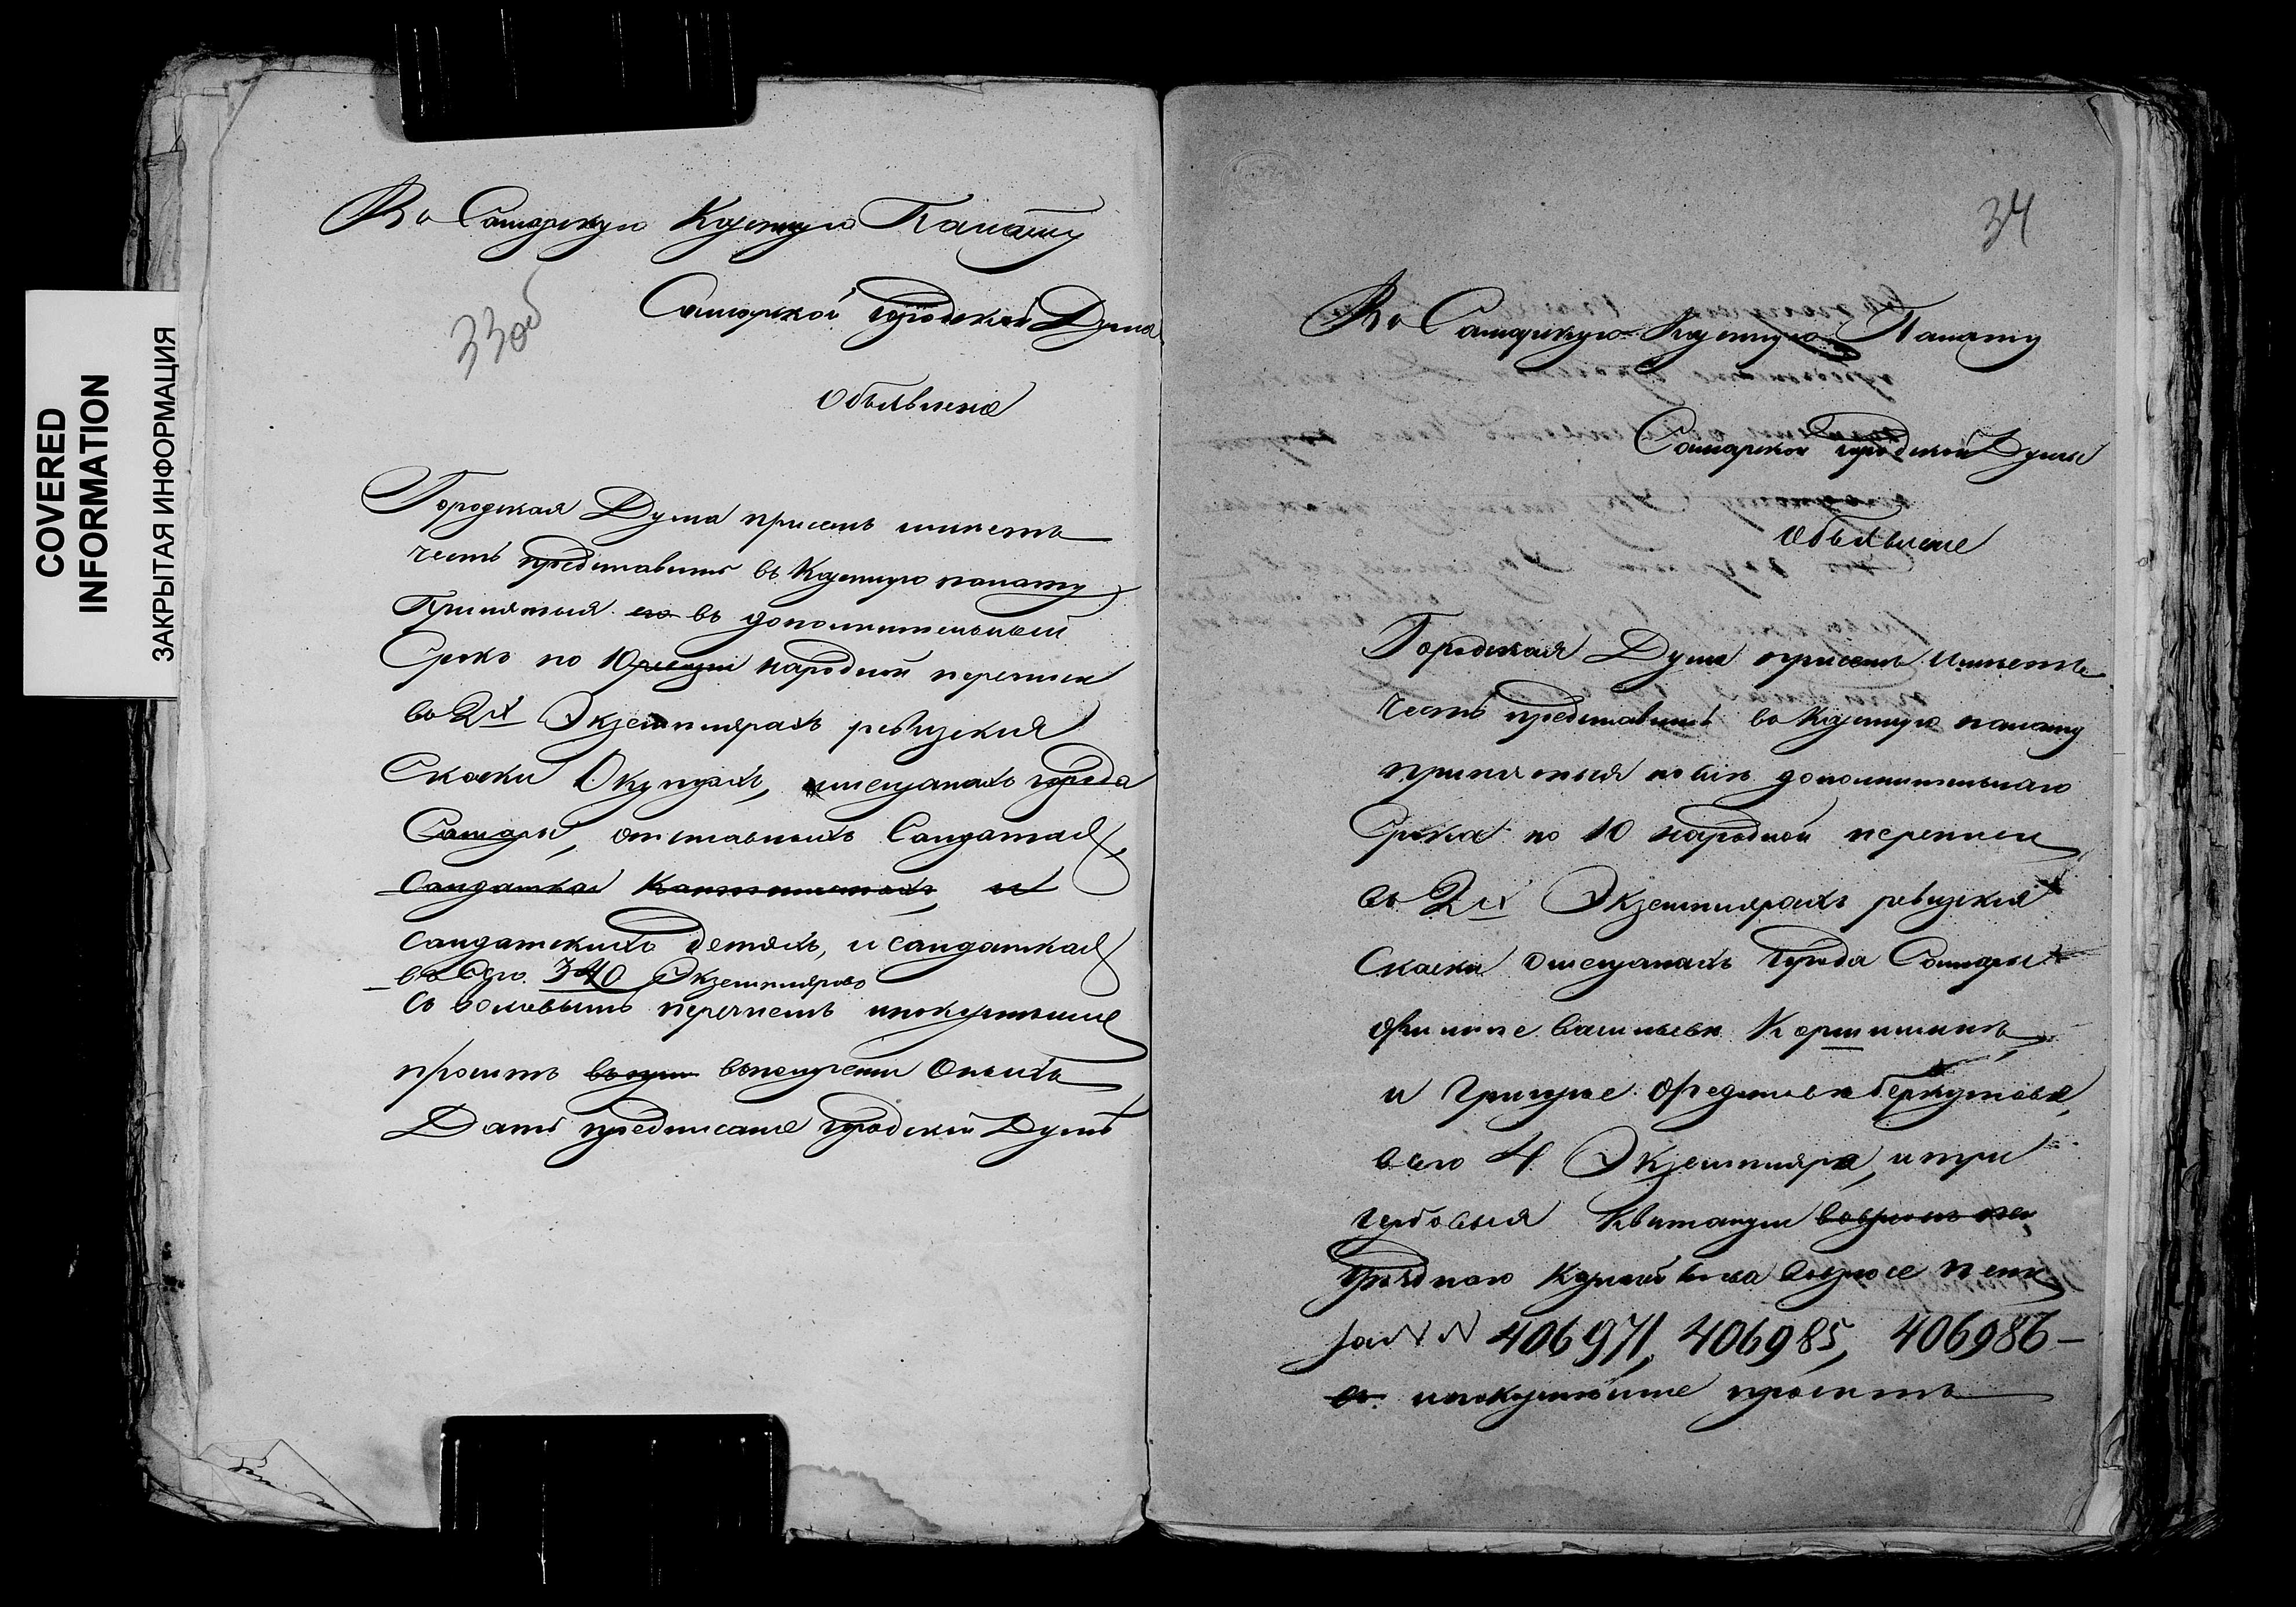 COVERED
INFORMATION
ЗАКРЫТАЯ ИНФОРМАЦИЯ
Во Самарскую Казенную Палату
33об
Самарской городской Думы
Объявление
Городская Дума присемъ имѣетъ
честь представить въ Казенную палату
Принятыя въ дополнительный
Срокъ по 10 ревизіи народной переписи
въ 2х Экземплярахъ ревизския
Скаски О купцахъ, мещанахъ города
Самары, отставныхъ Солдатах,
Солдатках Кантонистахъ, и
солдатскихъ детяхъ, и солдатках
340 Экземпляровъ
съ валовымъ перечнемъ ипокорнейше
проситъ вполучении Оныхъ
Дать предписание городской Думѣ
34
Во Самарскую Казенную Палату
Самарской городской Думы
Объявление
Городская Дума присемъ Имѣетъ
Честь представить во Казенную палату
принятыя дополнительнаго
Срока по 10 народной переписи
въ 2х Экземплярахъ ревизския
Скаски О мещанахъ города Самары
Филипе Васильеве
и Григорье Федотове Беркутове,
всего 4 Экземпляра, и три
гербовыя Квитанции
Казначейства Взносе пени
за NN 406971, 406985, 406986 —
ипокорнейше проситъ